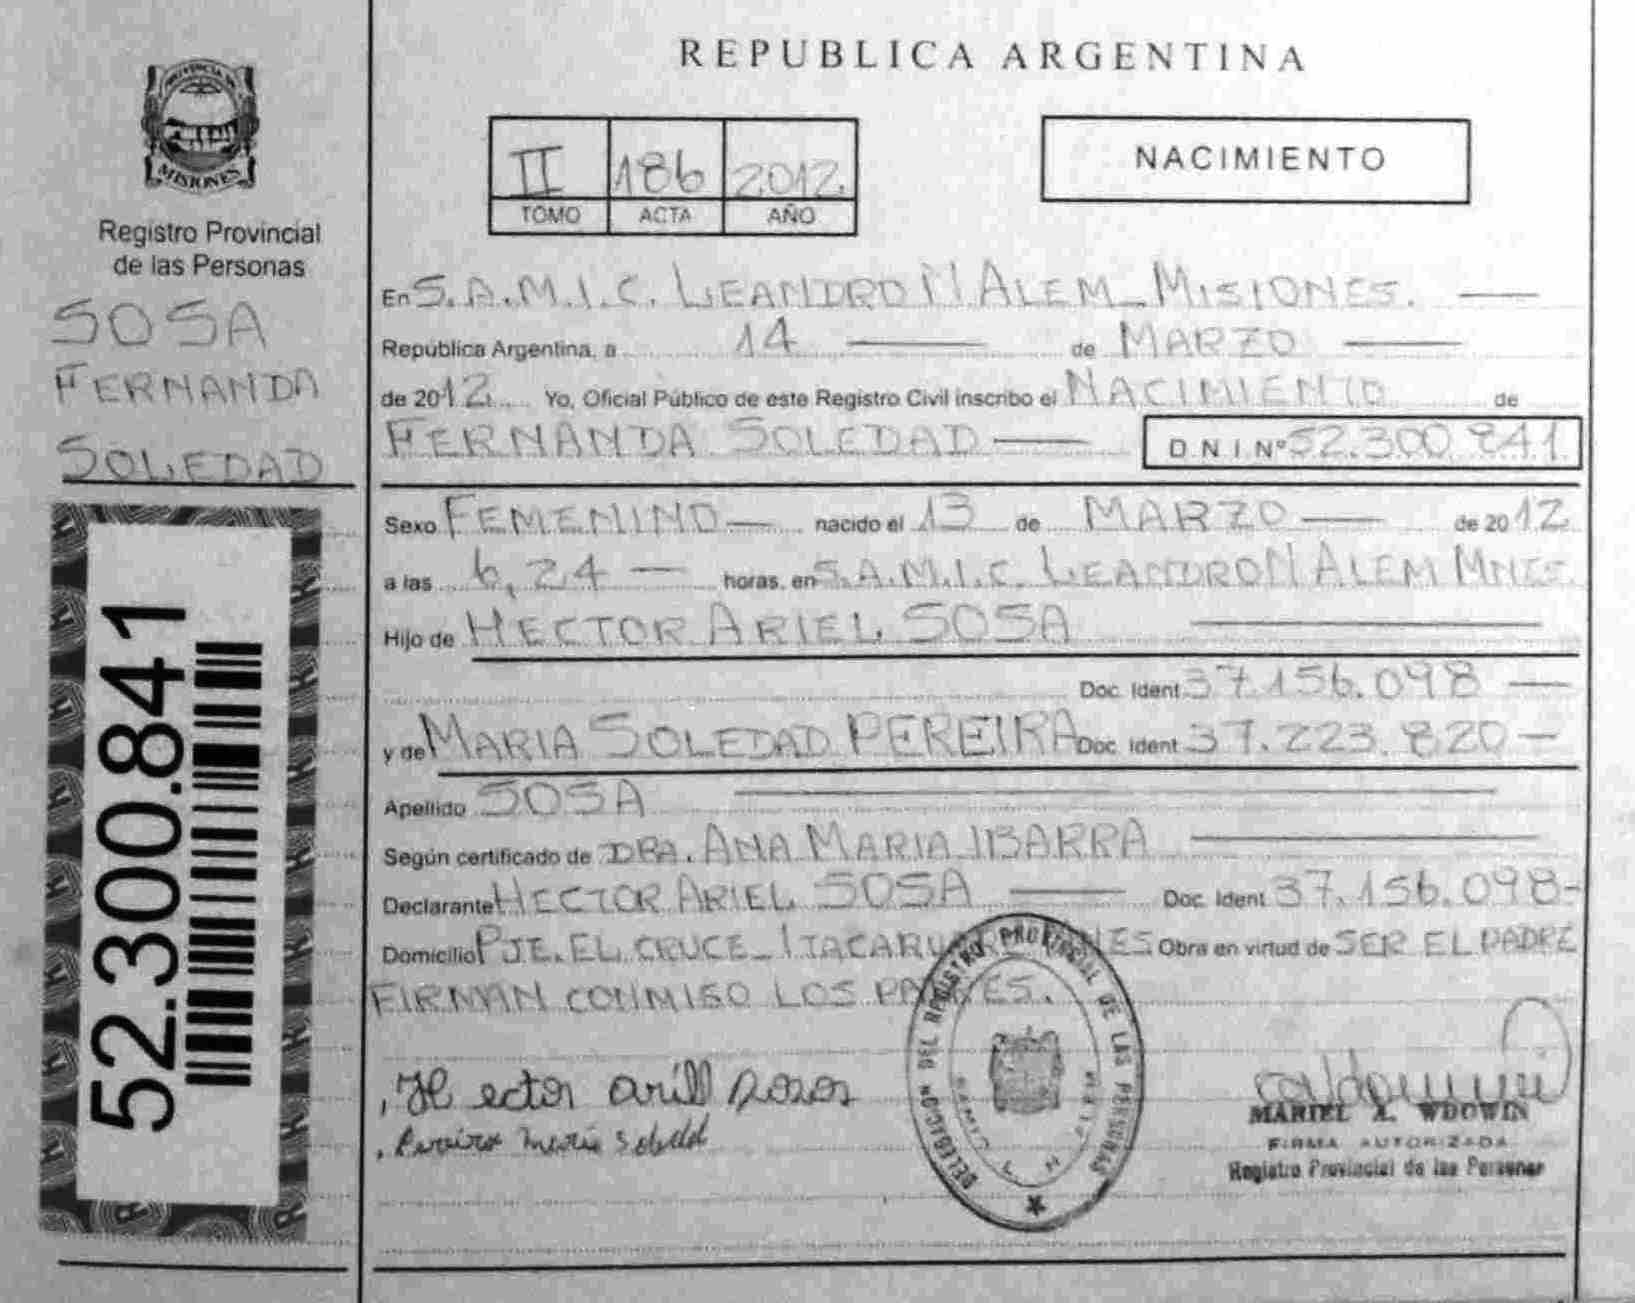 REPUBLICA ARGENTINA
PROVINCIA DE
MISIONES
Registro Provincial
de las Personas
SOSA
FERNANDA
SOLEDAD
52.300.841
II 186 2012
TOMO ACTA AÑO
NACIMIENTO
En S.A.M.I.C. LEANDRO N ALEM_MISIONES.
República Argentina, a 14 de MARZO
de 2012 Yo, Oficial Público de este Registro Civil inscribo el NACIMIENTO de
FERNANDA SOLEDAD D N I Nº 52.300 841
Sexo FEMENINO nacido el 13 de MARZO de 2012
a las 6,24 horas, en S.A.M.I.C. LEANDRO N ALEM MNES.
Hijo de HECTOR ARIEL SOSA
Doc. Ident 37.156.098
y de MARIA SOLEDAD PEREIRA Doc. Ident 37.223.820
Apellido SOSA
Según certificado de DRA. ANA MARIA IBARRA
Declarante HECTOR ARIEL SOSA Doc. Ident 37.156.098-
Domicilio PJE. EL CRUCE_ITACARU Obra en virtud de SER EL PADRE
FIRMAN CONMIGO LOS PADRES.
DELEGACION DEL REGISTRO PROVINCIAL DE LAS PERSONAS
Hector arill
MARIEL A. WDOWIN
FIRMA AUTORIZADA
Registro Provincial de las Personas